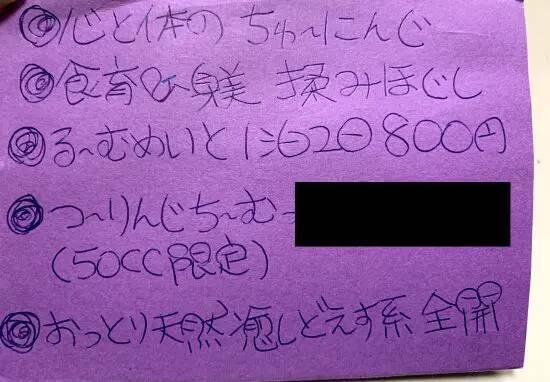 ◎心と体の ちゅ〜にんぐ
◎食育の臭美 揉みほぐし
◎る〜むめいと 1泊2日800円
◎つ〜りんぐち〜むっ
(50CC限定)
◎おっとり天然癒しどえす系 全開